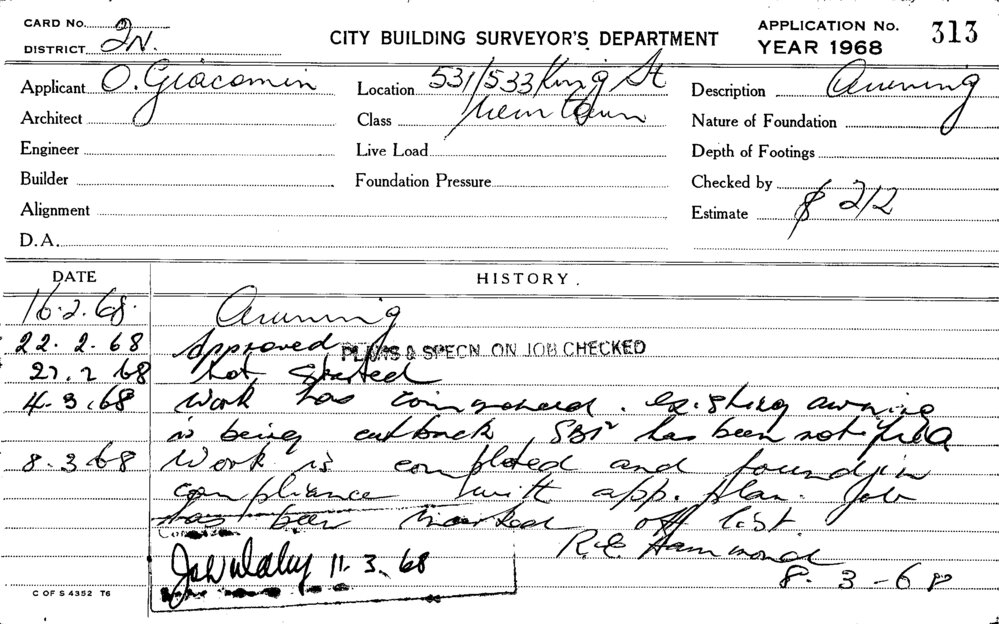 CARD No. 2
DISTRICT 2N.
CITY BUILDING SURVEYOR'S DEPARTMENT
APPLICATION No. 313
YEAR 1968
Applicant O. Giacomin
Location 531/533 King St
Newtown
Description Awning
Architect
Class
Nature of Foundation
Engineer
Live Load
Depth of Footings
Builder
Foundation Pressure
Checked by
Alignment
Estimate $ 212
D.A.
DATE
HISTORY.
16.2.68. Awning
22.2.68 Approved
PLANS & SPECN. ON JOB CHECKED
27.2.68 Not started
4.3.68 Work has commenced. existing awning
is being cut back has been notified
8.3.68 Work is completed and found in
compliance with app. plan. Job
has been marked off list
R.E. Hammond
8.3-68
11.3.68
C OF S 4352 T6